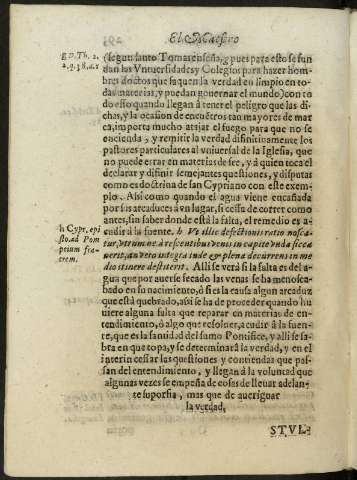 El Maestro
g D. Th. 2.
2. q. 38. a. 1
(segun santo Tomas enseña, g pues para esto se fun
dan las Vniuersidades y Colegios para hazer hom
bres doctos que saquen la verdad en limpio en to
das materias, y puedan gouernar el mundo) con to
do esto quando llegan à tener el peligro que las di-
chas, y la ocasion de encuẽtros tan mayores de mar
ca, importa mucho atajar el fuego para que no se
encienda, y remitir la verdad difinitiuamente los
pastores particulares al vniuersal de la Iglesia, que
no puede errar en materias de fee, y à quien toca el
declarar y difinir semejantes questiones, y disputas
como es doctrina de san Cypriano con este exem-
plo. Assi como quando el agua viene encañada
por sus arcaduces à vn lugar, si cessa de correr como
antes, sin saber donde està la falta, el remedio es a-
cudir à la fuente. h Vt illic defectionis ratio nosca
tur, vtrum ne arescentibus venis in capite vnda sicca
uerit, an vero integra inde & plena decurrens in me
dio itinere destiterit. Alli se verà si la falta es del a-
gua que por auerse secado las venas se ha menosca-
bado en su nacimiento, ò si es la causa algun arcaduz
que està quebrado, assi se ha de proceder quando hu
uiere alguna falta que reparar en materias de en-
tendimiento, ò algo que resoluer, acudir à la fuen-
te, que es la santidad del sumo Pontifice, y alli se sa-
bra en que topa, y se determinarà la verdad, y en el
interin cessar las questiones y contiendas que pas-
san del entendimiento, y llegan à la voluntad que
algunas vezes se empeña de cosas de lleuar adelan-
te su porfia, mas que de aueriguar
la verdad,
h Cypr. epi
sto. ad Pom
peium fra-
trem.
STVL-